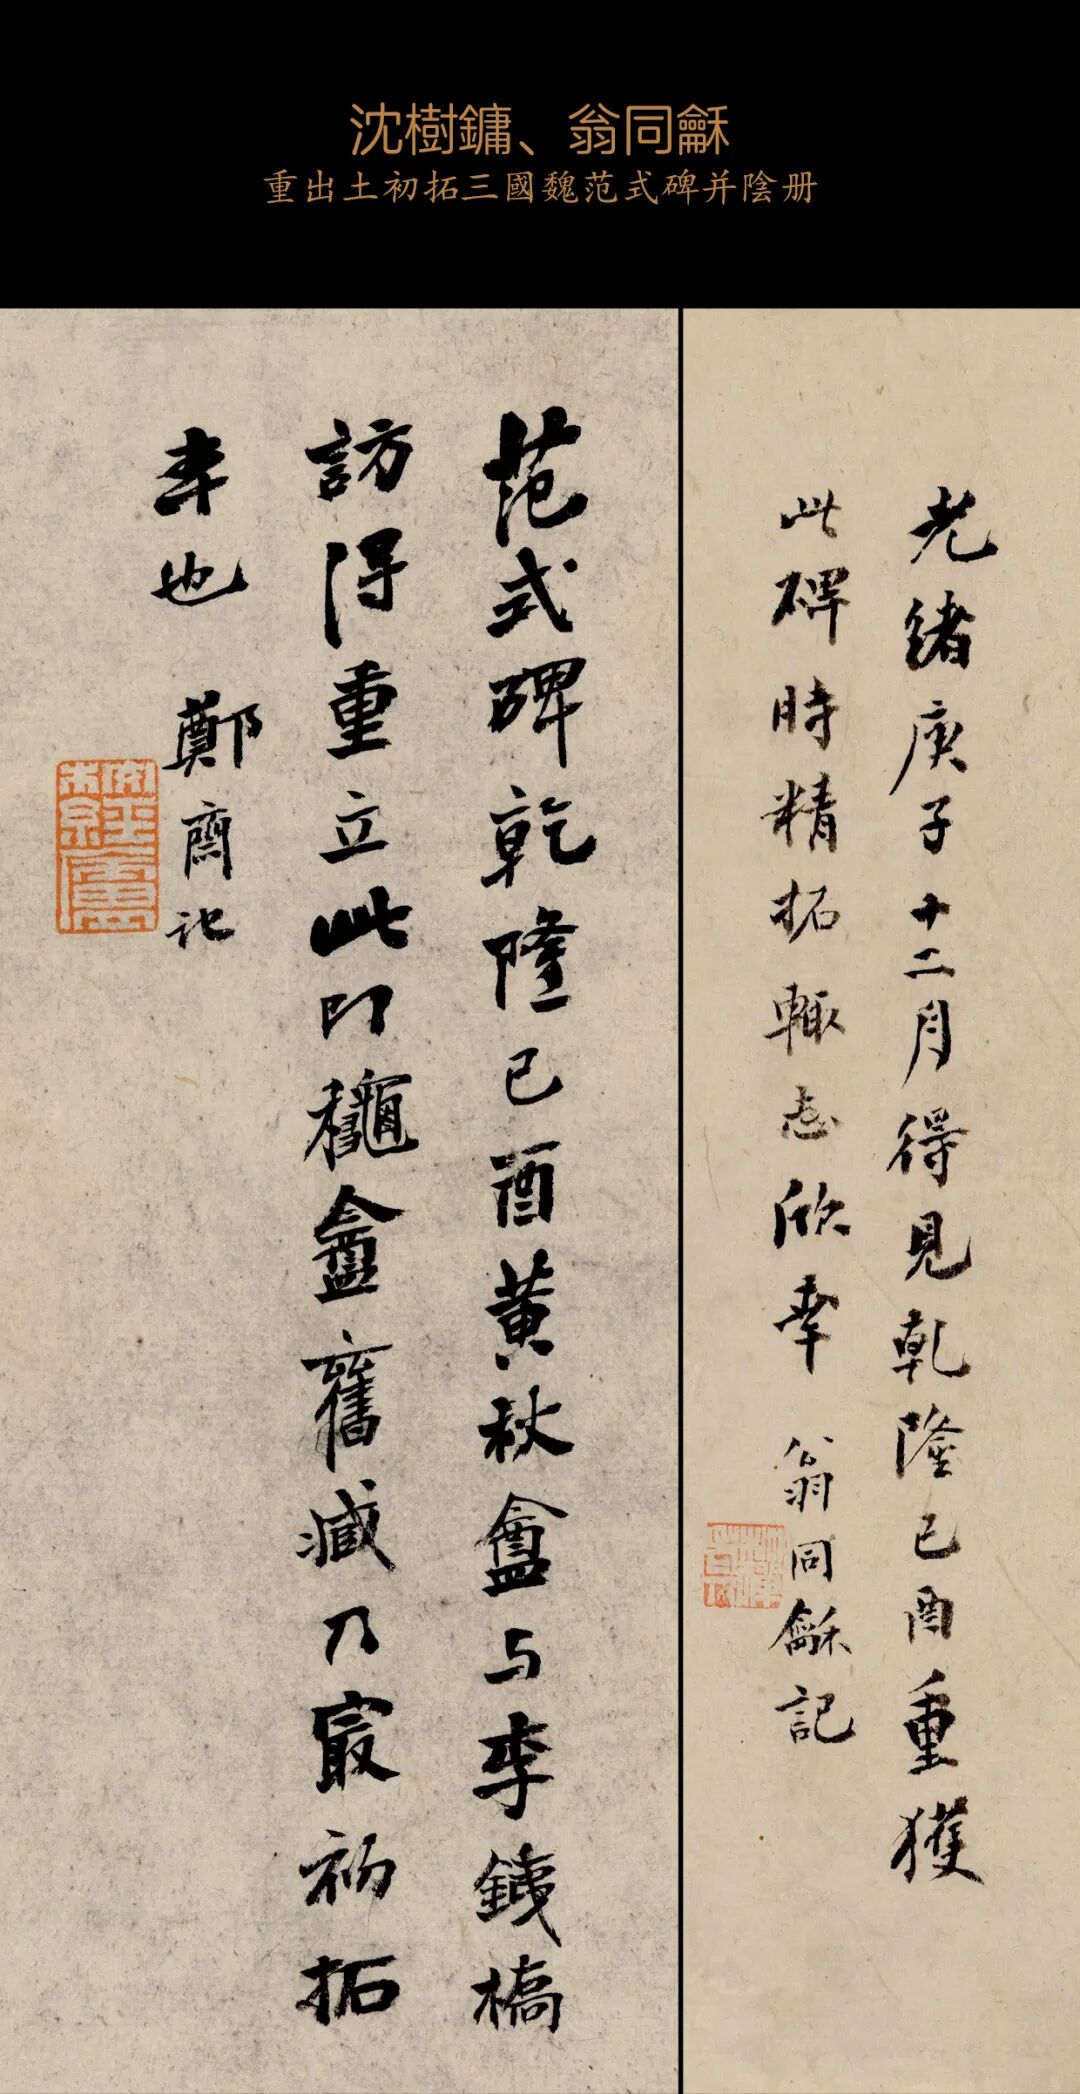 沈樹鏞、翁同龢
重出土初拓三國魏范式碑并陰册
光緒庚子十二月得見乾隆己酉重獲
此碑時精拓輒志欣幸　翁同龢記
范式碑乾隆己酉黃秋盦与李鐵橋
訪得重立此即龝盦舊臧乃寂初拓
本也　鄭齋記